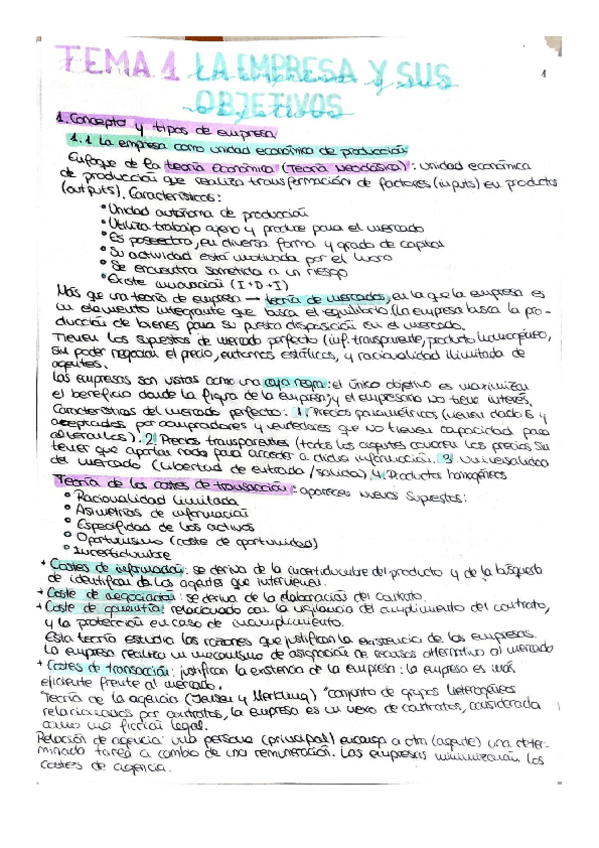 TEMA 1 LA EMPRESA Y SUS
OBJETIVOS
1
1. Concepto y tipos de empresa
1.1 La empresa como unidad económica de producción
Enfoque de la teoría económica (Teoría Neoclásica): unidad económica
de producción que realiza transformación de factores (inputs) en productos
(outputs). Características:
• Unidad autónoma de producción
• Utiliza trabajo ajeno y produce para el mercado
• Es poseedora, en diversa forma y grado de capital
• Su actividad está motivada por el lucro
• Se encuentra sometida a un riesgo
• Existe innovación (I+D+I)
Más que una teoría de empresa → teoría de mercados, en la que la empresa es
un elemento integrante que busca el equilibrio (la empresa busca la pro-
ducción de bienes para su puesta disposición en el mercado.
Tienen los supuestos de mercado perfecto (inf. transparente, producto homogéneo,
sin poder negociar el precio, entornos estáticos, y racionalidad ilimitada de
agentes.
Las empresas son vistas como una caja negra: el único objetivo es maximizar
el beneficio donde la figura de la empresa y el empresario no tiene interés.
Características del mercado perfecto: 1. Precios paramétricos (vienen dados y
aceptados por compradores y vendedores que no tienen capacidad para
alterarlos). 2. Precios transparentes (todos los agentes conocen los precios sin
tener que aportar nada para acceder a dicha información. 3. Universalidad
del mercado (libertad de entrada/salida) 4. Productos homogéneos
Teoría de los costes de transacción: aparecen nuevos supuestos:
• Racionalidad limitada
• Asimetrías de información
• Especificidad de los activos
• Oportunismo (coste de oportunidad)
• Incertidumbre
+ Costes de información: se deriva de la incertidumbre del producto y de la búsqueda
de identificar de los agentes que intervienen.
+ Coste de negociación: se deriva de la elaboración del contrato.
+ Coste de garantía: relacionado con la vigilancia del cumplimiento del contrato,
y la protección en caso de incumplimiento.
Esta teoría estudia las razones que justifican la existencia de las empresas.
La empresa realiza un mecanismo de asignación de recursos alternativo al mercado
+ Costes de transacción: justifican la existencia de la empresa: la empresa es más
eficiente frente al mercado.
Teoría de la agencia (Jensen y Meckling) "conjunto de grupos heterogéneos
relacionados por contratos, la empresa es un nexo de contratos, considerada
como una ficción legal.
Relación de agencia: una persona (principal) encarga a otra (agente) una deter-
minada tarea a cambio de una remuneración. Las empresas minimizarán los
costes de agencia.